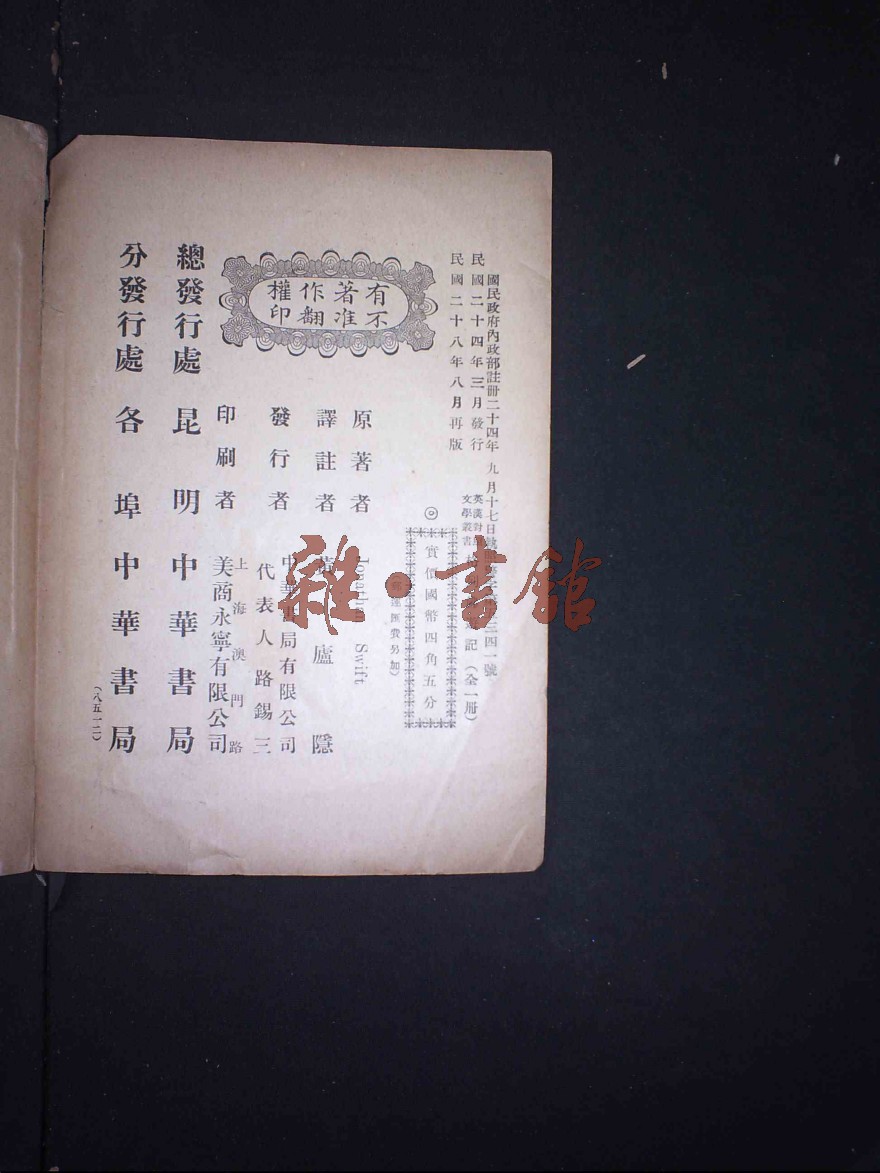 國民政府內政部註冊二十四年 九月十七日 三四一號
民國二十四年三月發行
民國二十八年八月再版
英漢對
文學叢書 記(全一冊)
◎ 實價國幣四角五分
(郵運匯費另加)
有著作權
不准翻印
原著者 Jonathan Swift
譯註者 黃廬隱
發行者 中華書局有限公司
代表人路錫三
印刷者 上海澳門路
美商永寧有限公司
總發行處 昆明中華書局
分發行處 各埠中華書局
(八五一二)
雜·書館